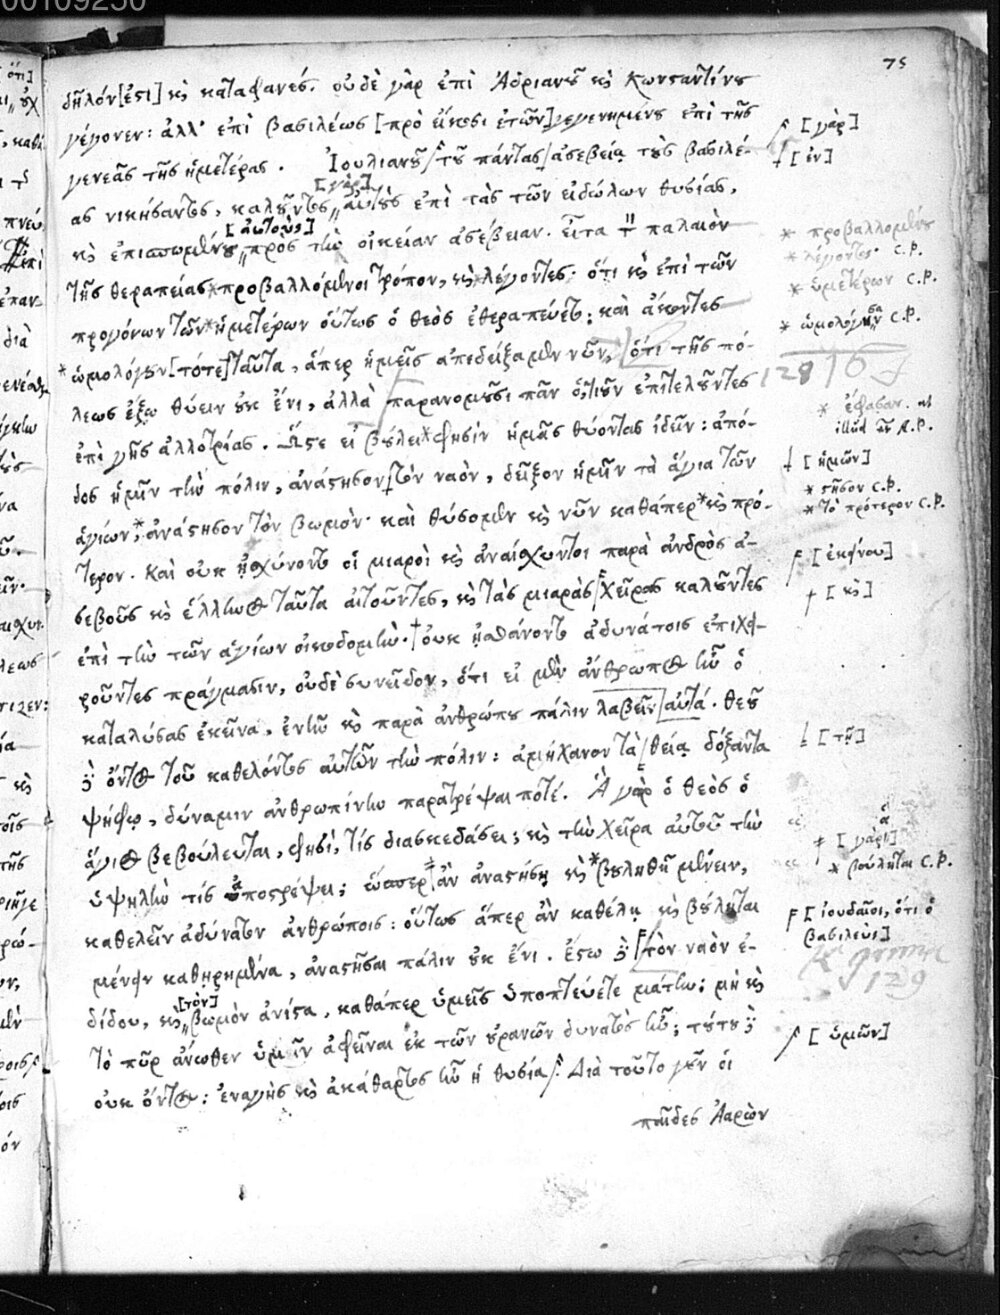 00109250
75
δῆλόν [ἐστι] κὶ καταφανές. οὐδὲ γὰρ ἐπὶ Ἀδριανοῦ κὶ Κωνσταντίνου
γέγονεν: ἀλλ' ἐπὶ βασιλέως [πρὸ εἴκοσι ἐτῶν] γεγενημένου ἐπὶ τῆς
γενεᾶς τῆς ἡμετέρας. Ἰουλιανοῦ τοῦ πάντας ἀσεβείᾳ τοὺς βασιλέ-
ας νικήσαντος, καλοῦντος αὐτοὺς ἐπὶ τὰς τῶν εἰδώλων θυσίας,
κὶ ἐπισπωμένου πρὸς τὴν οἰκείαν ἀσέβειαν. εἶτα τὸν παλαιὸν
τῆς θεραπείας * προβαλλόμενοι τρόπον, κὶ * λέγοντες· ὅτι κὶ ἐπὶ τῶν
προγόνων τῶν * ἡμετέρων οὕτως ὁ θεὸς ἐθεραπεύετο; καὶ ἄκοντες
* ὡμολόγουν [τότε] ταῦτα, ἅπερ ἡμεῖς ἀπεδείξαμεν νῦν, ὅτι τῆς πό-
λεως ἔξω θύειν οὐκ ἔνι, ἀλλὰ παρανομοῦσι πᾶν ὁτιοῦν ἐπιτελοῦντες
ἐπὶ γῆς ἀλλοτρίας. Ὥστε εἰ βούλει * φησὶν ἡμᾶς θύοντας ἰδεῖν: ἀπό-
δος ἡμῖν τὴν πόλιν, ἀνάστησον τὸν ναὸν, δεῖξον ἡμῖν τὰ ἅγια τῶν
ἁγίων, * ἀνάστησον τὸν βωμὸν· καὶ θύσομεν κὶ νῦν καθάπερ * κὶ πρό-
τερον. Καὶ οὐκ ᾐσχύνοντο οἱ μιαροὶ κὶ ἀναίσχυντοι παρὰ ἀνδρὸς ἀ-
σεβοῦς κὶ ἕλληνος ταῦτα αἰτοῦντες, κὶ τὰς μιαρὰς χεῖρας καλοῦντες
ἐπὶ τὴν τῶν ἁγίων οἰκοδομήν. οὐκ ᾐσθάνοντο ἀδυνάτοις ἐπιχει-
ροῦντες πράγμασιν, οὐδὲ συνεῖδον, ὅτι εἰ μὲν ἄνθρωπος ἦν ὁ
καταλύσας ἐκεῖνα, ἐνῆν κὶ παρὰ ἀνθρώπου πάλιν λαβεῖν αὐτά. θεοῦ
δὲ ὄντος τοῦ καθελόντος αὐτῶν τὴν πόλιν: ἀμήχανον τὰ θείᾳ δόξαντα
ψήφῳ, δύναμιν ἀνθρωπίνην παρατρέψαι ποτέ. Ἃ γὰρ ὁ θεὸς ὁ
ἅγιος βεβούλευται, φησὶ, τίς διασκεδάσει; κὶ τὴν χεῖρα αὐτοῦ τὴν
ὑψηλὴν τίς ἀποστρέψει; ὥσπερ ἂν ἀναστήσῃ κὶ * βουληθῇ μένειν,
καθελεῖν ἀδύνατον ἀνθρώποις: οὕτως ἅπερ ἂν καθέλῃ κὶ βούληται
μένειν καθῃρημένα, ἀναστῆσαι πάλιν οὐκ ἔνι. ἔστω δὲ τὸν ναὸν ἐ-
δίδου, κὶ [τὸν] βωμὸν ἀνίστα, καθάπερ ὑμεῖς ὑποπτεύετε μάτην: μὴ κὶ
τὸ πῦρ ἄνωθεν ὑμῖν ἀφεῖναι ἐκ τῶν οὐρανῶν δυνατὸς ἦν; τούτου δὲ
οὐκ ὄντος: ἐναγὴς κὶ ἀκάθαρτος ἦν ἡ θυσία. Διὰ τοῦτο γοῦν οἱ
παῖδες Ἀαρὼν
[γὰρ]
[ἐν]
[γὰρ]
[αὐτοὺς]
* προβαλλομένου
* λέγοντος· C.P.
* ὑμετέρων C.P.
* ὡμολόγησαν C.P.
128
* ἔφασαν. at
illud
[ἡμῶν]
* στῆσον C.P.
* τὸ πρότερον C.P.
[ἐκείνου]
[κὶ]
[τῇ]
[γὰρ]
* βούληται C.P.
[ἰουδαῖοι, ὅτι ὁ
βασιλεὺς]
129
[ὑμῶν]